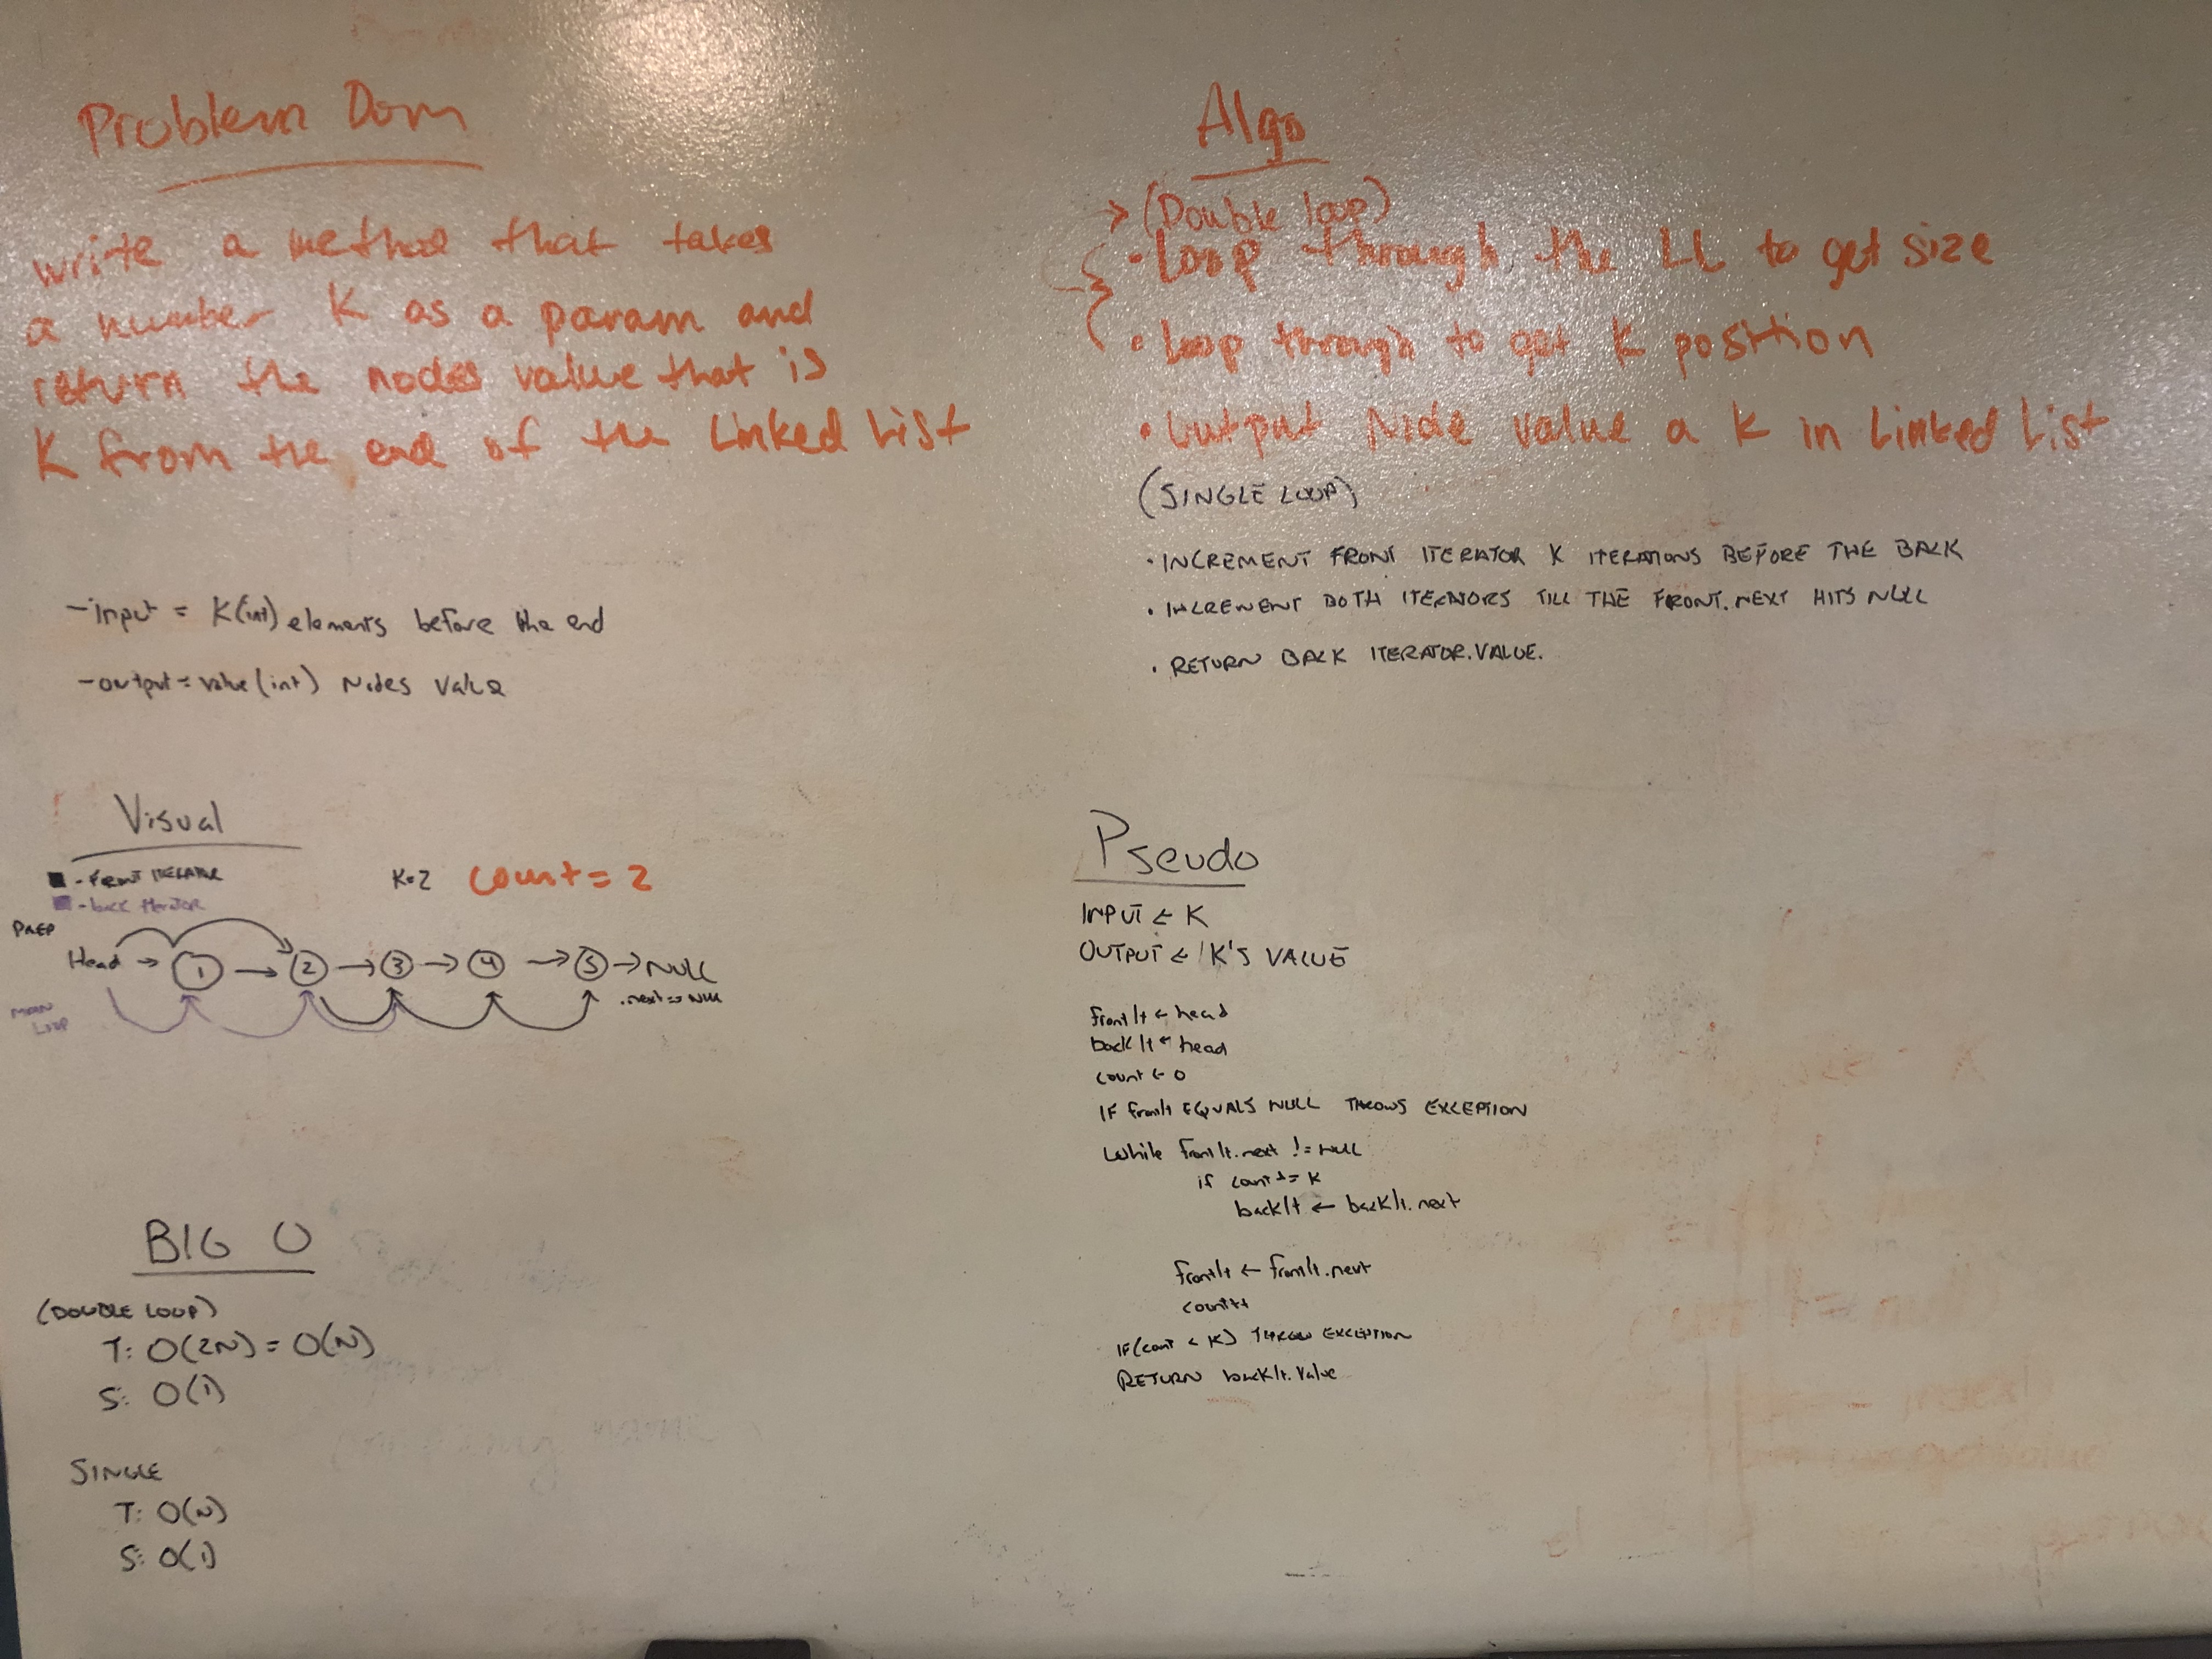 Problem Dom
write a method that takes
a number K as a param and
return the nodes value that is
K from the end of the Linked List
-input = K(int) elements before the end
-output = value (int) Nodes value
Visual
- FRONT ITERATOR
- back iterator
K=2 count = 2
PREP
Head → 1 → 2 → 3 → 4 → 5 → NULL
.next == NULL
MAIN
LOOP
BIG O
(DOUBLE LOOP)
T: O(2N) = O(N)
S: O(1)
SINGLE
T: O(N)
S: O(1)
Algo
> (Double loop)
• Loop through the LL to get size
• loop through to get K position
• Output Node value a K in Linked List
(SINGLE LOOP)
• INCREMENT FRONT ITERATOR K ITERATIONS BEFORE THE BACK
• INCREMENT BOTH ITERATORS TILL THE FRONT.NEXT HITS NULL
• RETURN BACK ITERATOR.VALUE.
Pseudo
INPUT ← K
OUTPUT ← K'S VALUE
frontIt ← head
backIt ← head
count ← 0
IF frontIt EQUALS NULL THROWS EXCEPTION
While frontIt.next != NULL
if count >= K
backIt ← backIt.next
frontIt ← frontIt.next
count++
IF(count < K) THROW EXCEPTION
RETURN backIt.Value